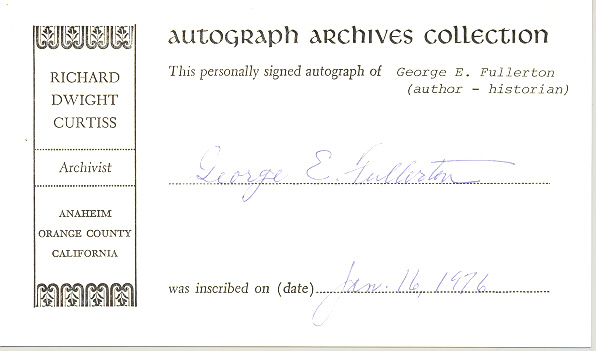 RICHARD
DWIGHT
CURTISS
Archivist
ANAHEIM
ORANGE COUNTY
CALIFORNIA
AUTOGRAPH ARCHIVES COLLECTION
This personally signed autograph of George E. Fullerton
(author - historian)
George E. Fullerton
was inscribed on (date) Jan. 16, 1976